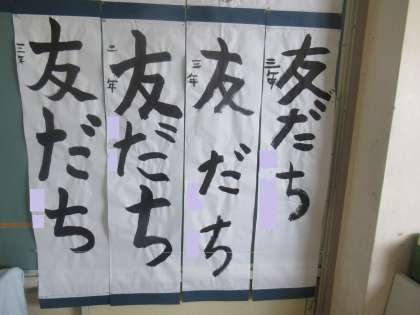 三年
友だち
三年
友だち
三年
友だち
三年
友だち